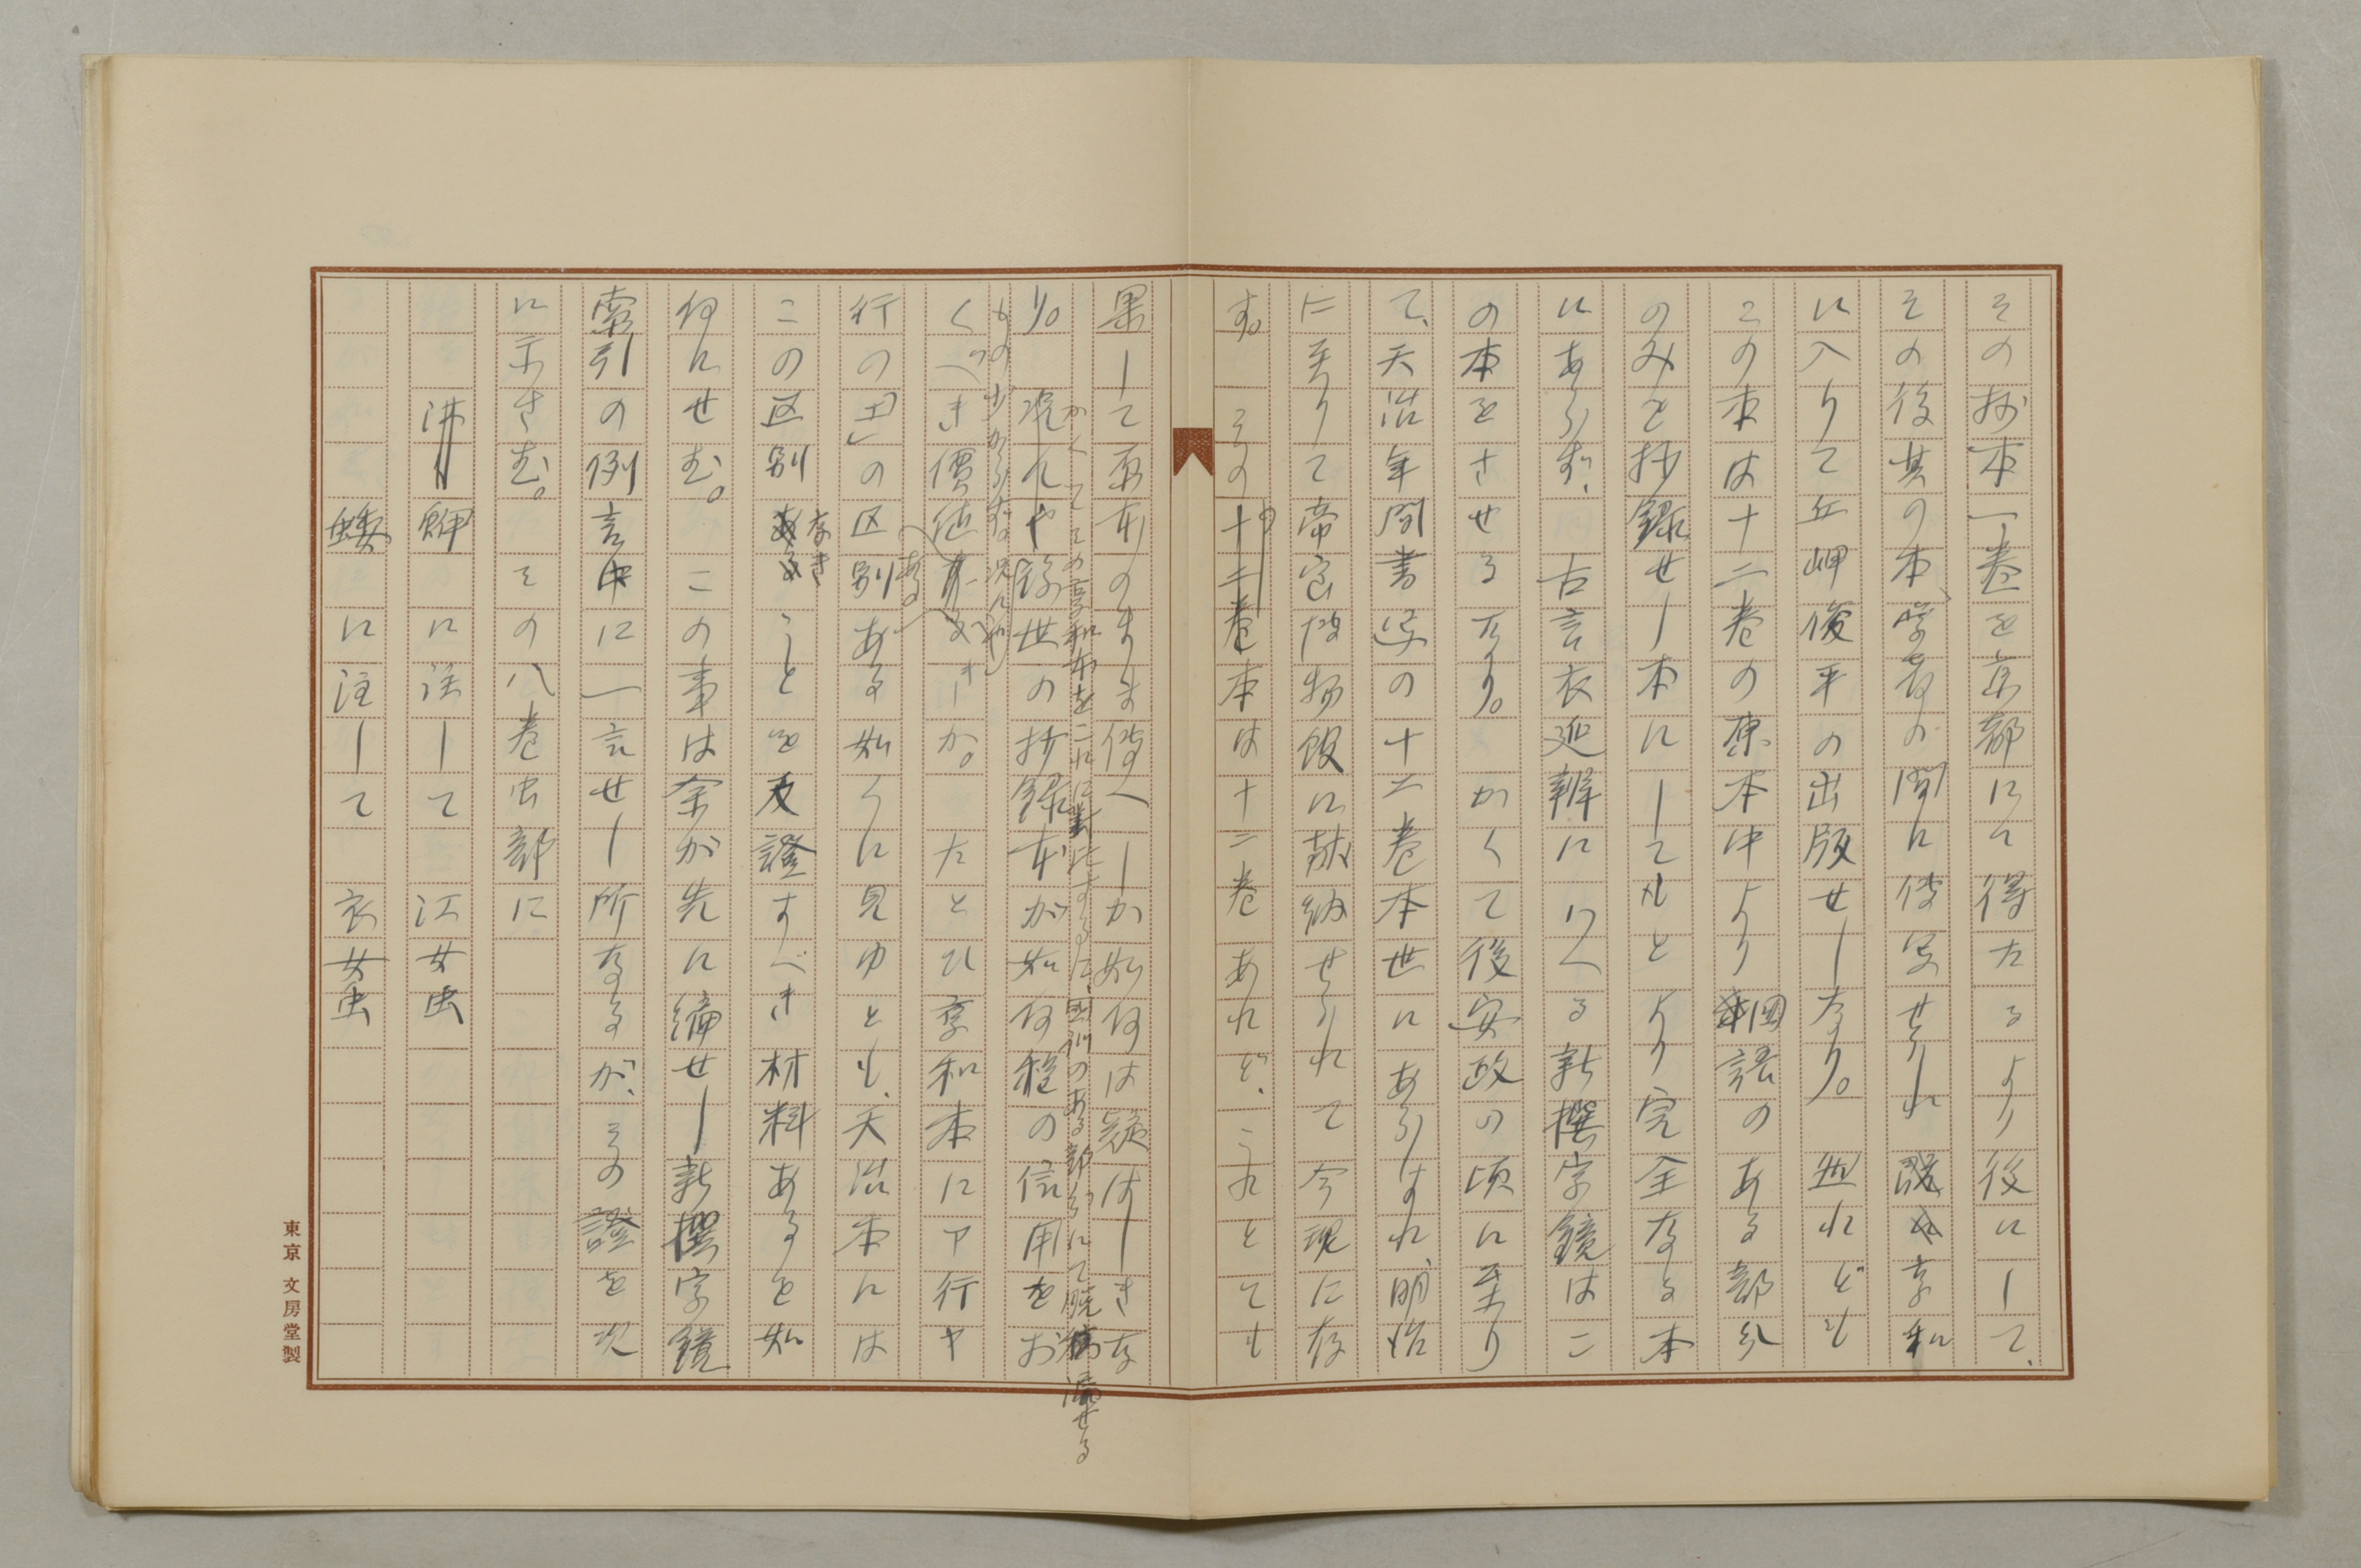 その抄本一巻を京都にて得たるより後にして、
その後其の本、学者の間に伝写せられ享和
に入りて丘岬俊平の出版せしなり。然れども
この本は十二巻の原本中より国語のある部分
のみを抄録せし本にしてもとより完全なる本
にあらず、古言衣延辨にいへる新撰字鏡はこ
の本をさせるなり。かくて後安政の頃に至り
て、天治年間書写の十二巻本世にあらはれ、明治
に至りて帝室博物館に献納せられて今現に存
す。その十二巻本は十二巻あれど、これとても
果して原本のまま伝へしか如何は疑はしきな
かくてその享和本をこれに対比するに、国訓のある部分にて脱漏せる
もの少からず
り。況んや後世の抄録本が如何程の信用をお
くべき價値あるべきか。たとひ享和本にア行ヤ
行の「エ」の区別ある如くに見ゆとも、天治本には
この区別なきことを反證すべき材料あるを如
何にせむ。この事は余が先に編せし新撰字鏡
索引の例言中に一言せし所なるが、その證を次
に示さむ。その八巻虫部に
蛢に注して 江女虫
に注して 衣女虫
東京 文房堂製